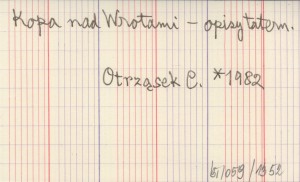 Kopa nad Wrotami – opisy tatern.
Otrząsek C. *1982
61/059/1952